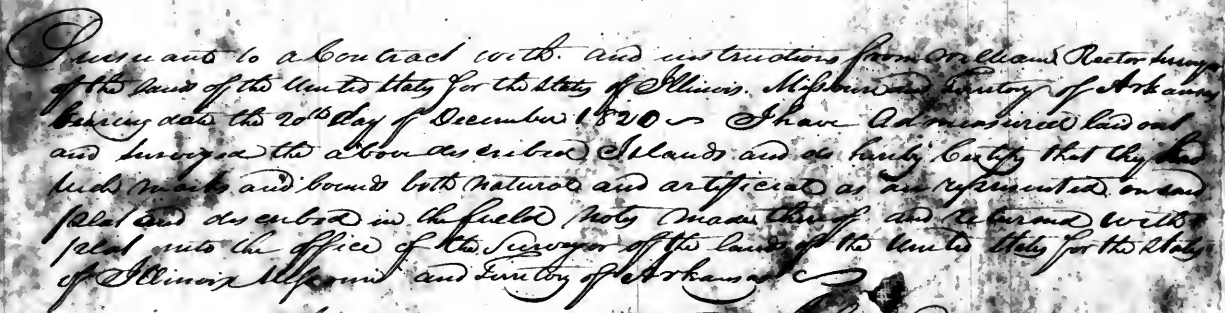 Pursuant to a Contract with and instructions from William Rector Surveyor
of the lands of the United States for the States of Illinois Missouri and Territory of Arkansas
bearing date the 20th day of December 1820 I have Admeasured laid out
and Surveyed the above described Islands and do hereby Certify that they had
such marks and bounds both natural and artificial as are represented on said
plat and described in the field notes made thereof and returned with
plat into the office of the Surveyor of the lands of the United States for the States
of Illinois Missouri and Territory of Arkansas